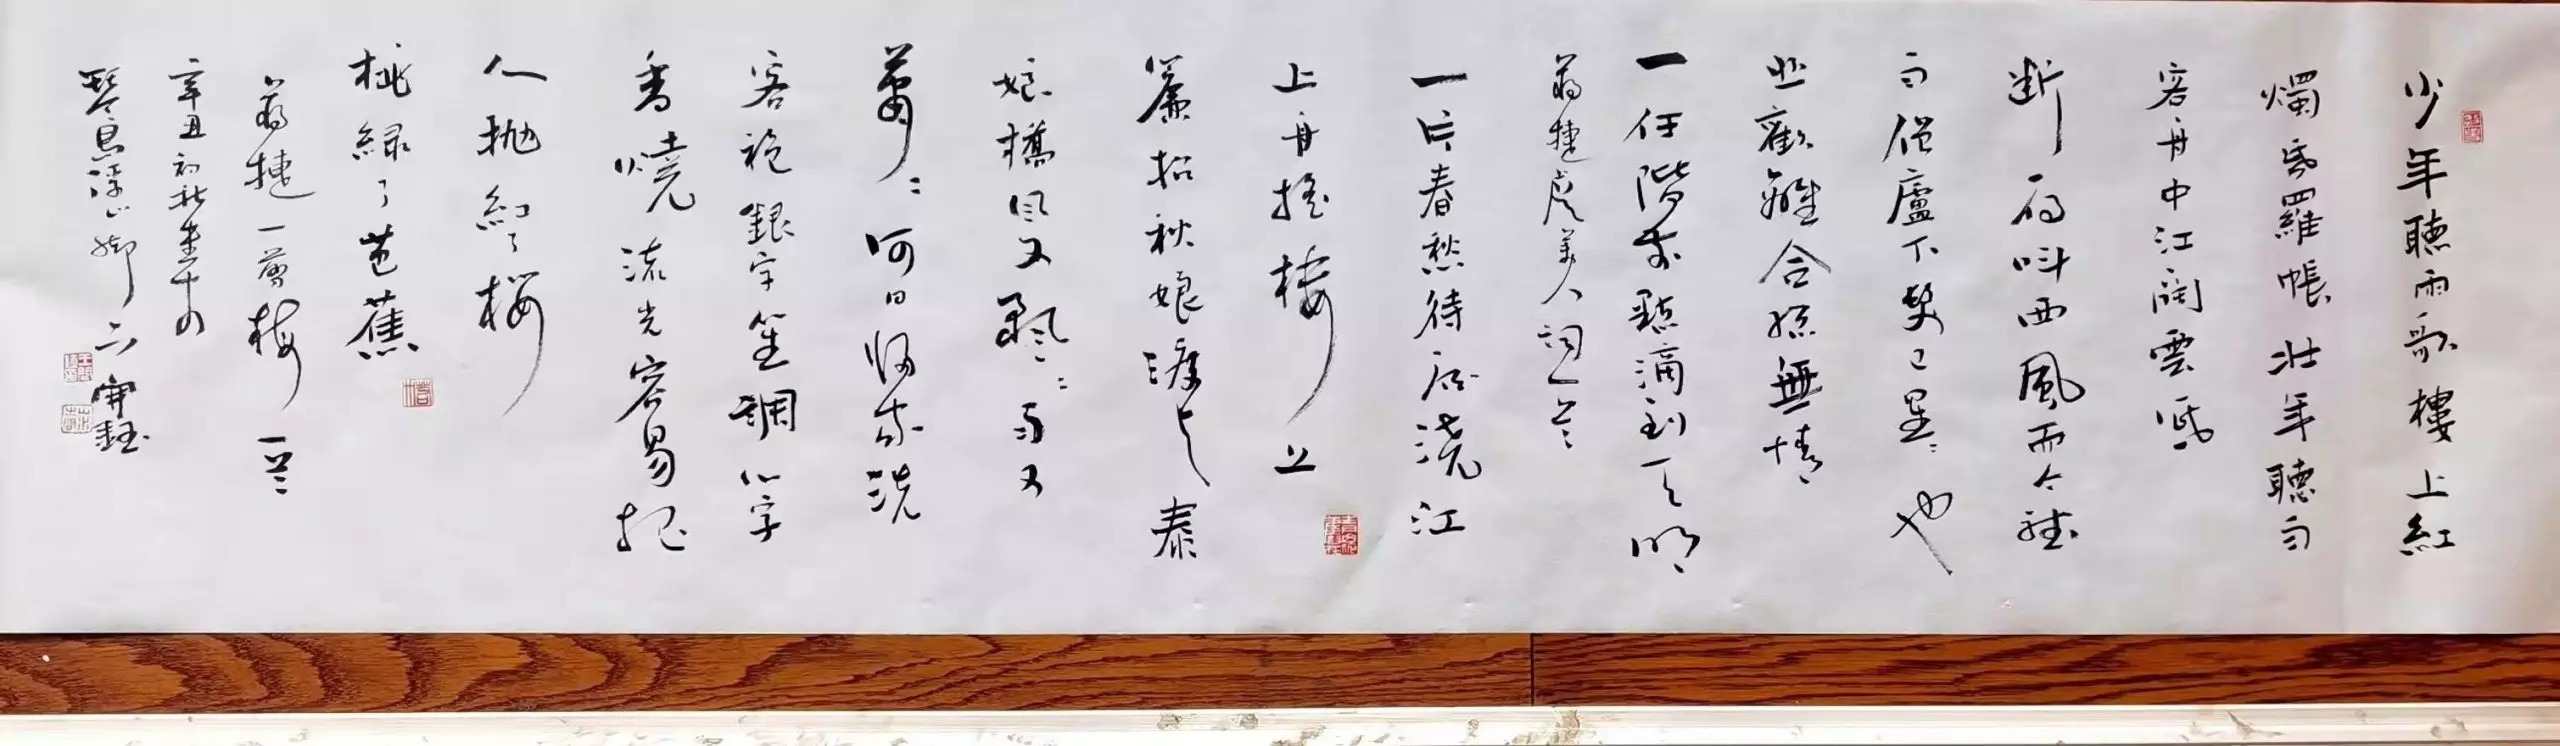 少年聽雨歌樓上紅
燭昏羅帳壯年聽雨
客舟中江闊雲低
斷雁叫西風而今聽
雨僧廬下鬢已星々也
悲歡離合總無情
一任階前點滴到天明
蔣捷虞美人詞一首
一片春愁待酒澆江
上舟搖樓上
簾招秋娘渡与泰
娘橋風又飄々雨又
蕭々何日歸家洗
客袍銀字笙調心字
香燒流光容易把
人拋紅了櫻
桃綠了芭蕉
蔣捷一剪梅一首
辛丑初秋